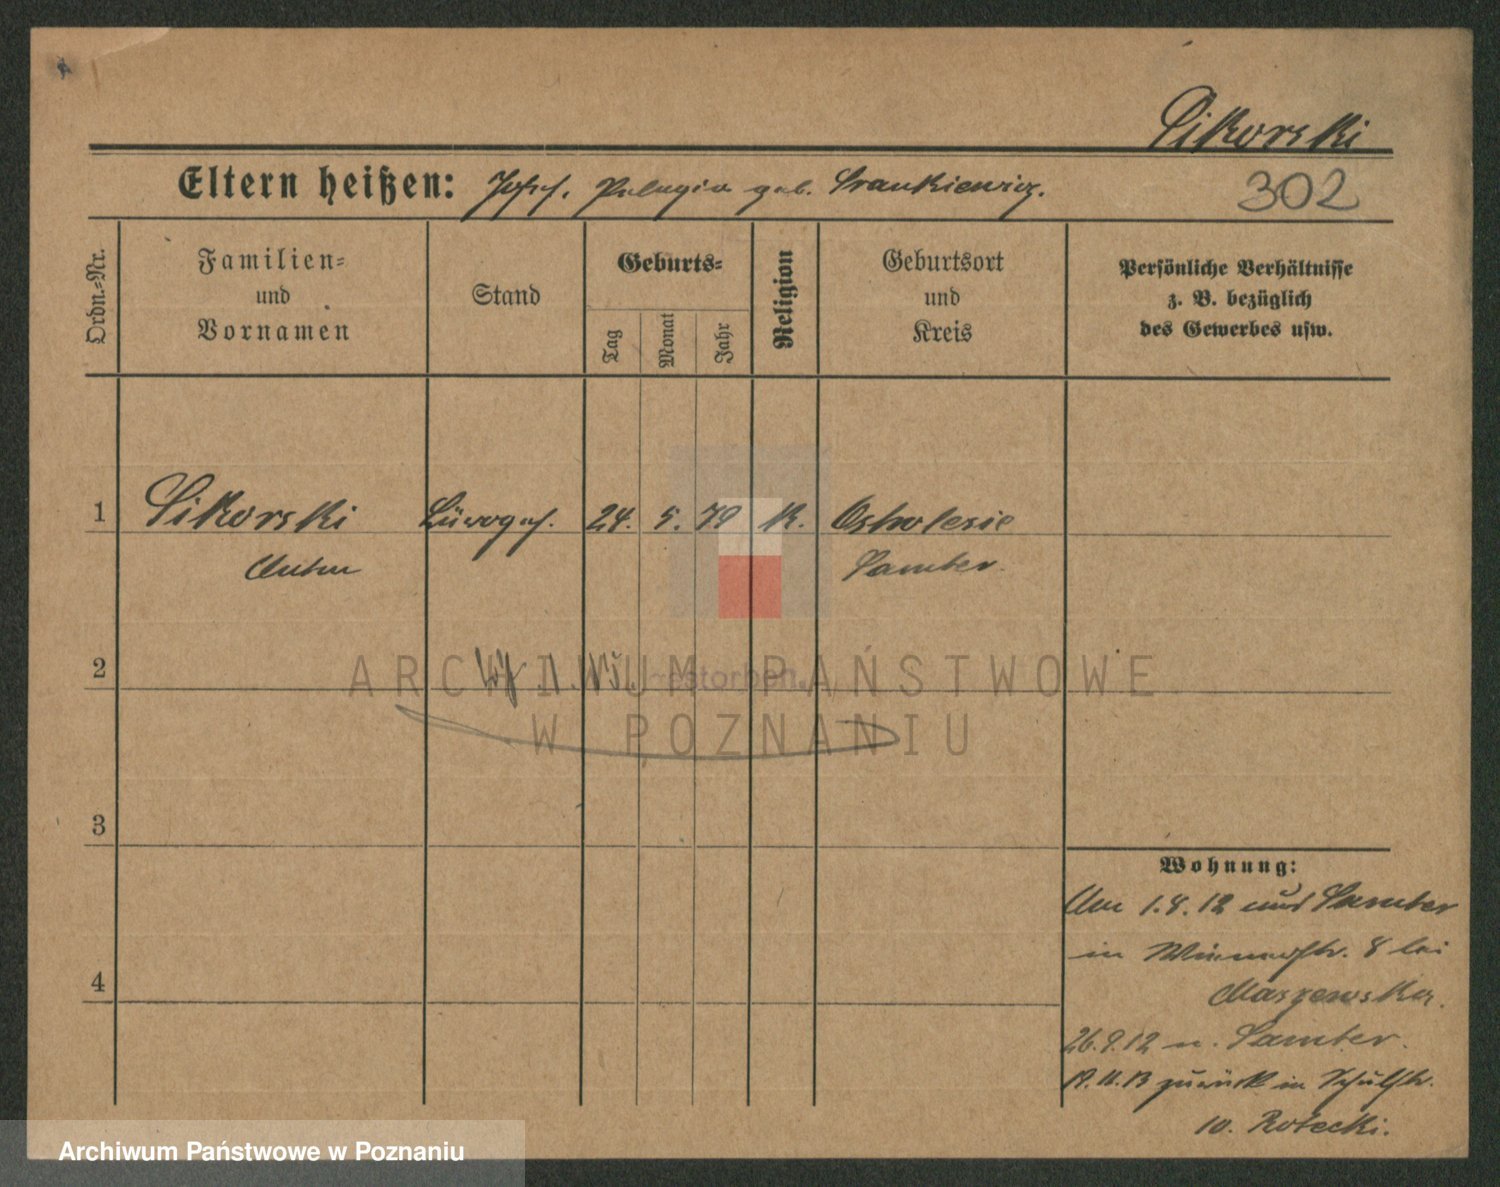 Sikorski
Eltern heißen: Josef. Pelagia geb. Frankiewicz.
302
Ordn.-Nr.
Familien-
und
Vornamen
Stand
Geburts-
Tag
Monat
Jahr
Religion
Geburtsort
und
Kreis
Persönliche Verhältnisse
z. B. bezüglich
des Gewerbes usw.
1 Sikorski 24. 5. 79 K.
Anton Samter
2 gestorben.
ARCHIWUM PAŃSTWOWE
W POZNANIU
3
4
Wohnung:
Am 1.8.12 aus Samter
in 8 bei
Maszewska.
26.9.12 n. Samter.
zurück in Schulstr.
10. Rotecki.
Archiwum Państwowe w Poznaniu